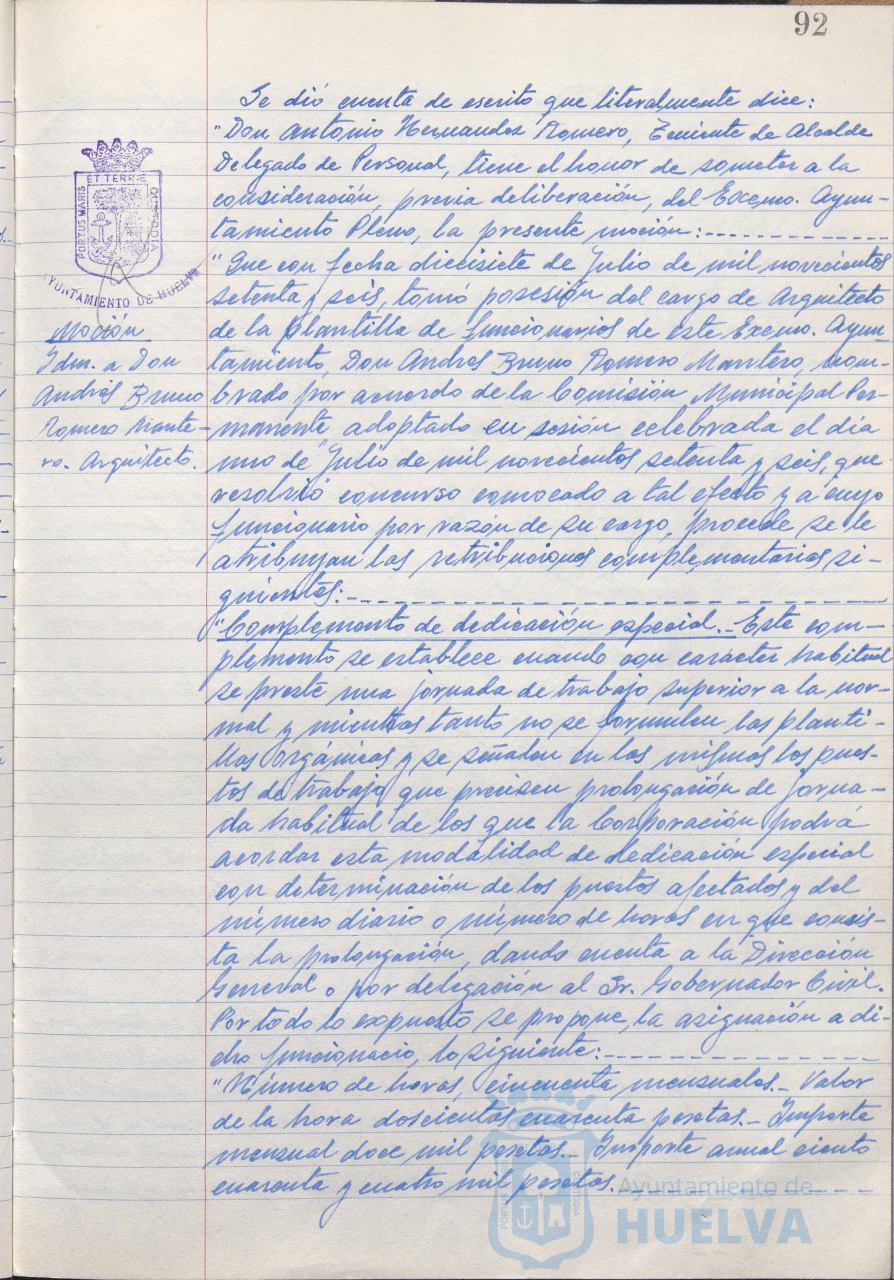 92
Se dió cuenta de escrito que literalmente dice:
"Don Antonio Hernandez Romero, Teniente de Alcalde
Delegado de Personal, tiene el honor de someter a la
consideración, previa deliberación, del Excmo. Ayun-
tamiento Pleno, la presente moción:
"Que con fecha diecisiete de Julio de mil novecientos
setenta y seis, tomó posesión del cargo de Arquitecto
de la plantilla de funcionarios de este Excmo. Ayun-
tamiento, Don Andrés Bruno Romero Mantero, nom-
brado por acuerdo de la Comisión Municipal Per-
manente adoptado en sesión celebrada el día
uno de Julio de mil novecientos setenta y seis, que
resolvió concurso convocado a tal efecto y a cuyo
funcionario por razón de su cargo, procede se le
atribuyan las retribuciones complementarias si-
guientes:
"Complemento de dedicación especial.- Este com-
plemento se establece cuando con caracter habitual
se preste una jornada de trabajo superior a la nor-
mal y mientras tanto no se formulen las planti-
llas orgánicas y se señalen en las mismas los pues-
tos de trabajo que precisen prolongación de jorna-
da habitual de los que la Corporación podrá
acordar esta modalidad de dedicación especial
con determinación de los puestos afectados y del
número diario o número de horas en que consis-
ta la prolongación, dando cuenta a la Dirección
General o por delegación al Sr. Gobernador Civil.
Por todo lo expuesto se propone, la asignación a di-
cho funcionario, lo siguiente:
"Número de horas, cincuenta mensuales.- Valor
de la hora doscientas cuarenta pesetas.- Importe
mensual doce mil pesetas.- Importe anual ciento
cuarenta y cuatro mil pesetas.
PORTUS MARIS ET TERRE CUSTODIA
AYUNTAMIENTO DE HUELVA
Moción
Idm. a Don
Andrés Bruno
Romero Mante-
ro. Arquitecto.
Ayuntamiento de
HUELVA